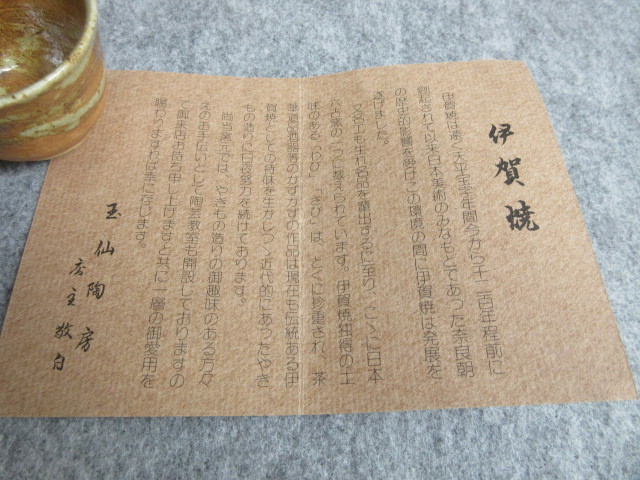 伊賀焼
伊賀焼は遠く天平宝字年間今から千二百年程前に
創起されて以来日本美術のみなもとであった奈良朝
の歴史的影響を受けこの環境の間に伊賀焼は発展を
とげました。
名工も生れ名品を輩出するに至り、こゝに日本
六古窯の一つに数えられています。伊賀焼独得の土
味のある「わび」「さび」は、とくに珍重され、茶
華道の酒器等のかずかずの作品は現在も伝統ある伊
賀焼としての持味を生かしつゝ近代的にあったやき
もの造りに日夜努力を続けております。
尚当窯元では、やきもの造りの御趣味のある方々
えのお手伝いとして陶芸教室も開設しておりますの
で御来店お待ち申し上げますと共に一層の御愛用を
賜わりますれば幸に存じます。
玉仙陶房
房主敬白